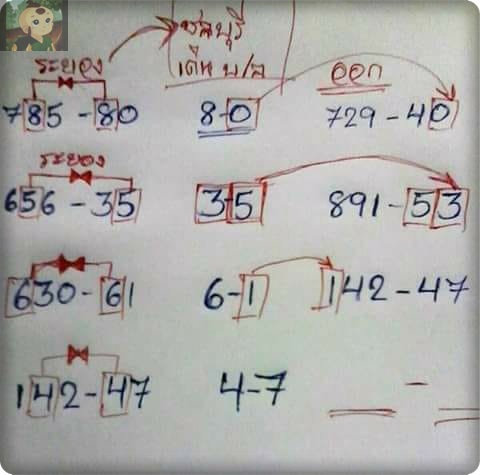 ชลบุรี
ระยอง เดิน บ/ล ออก
785 - 80 8-0 729 - 40
ระยอง
656 - 35 3-5 891 - 53
630 - 61 6-1 142 - 47
142 - 47 4-7 -